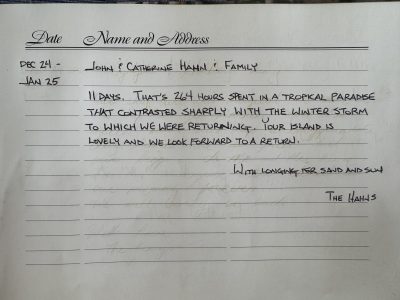 Date Name and Address
DEC 24 - JOHN & CATHERINE HAHN & FAMILY
JAN 25
11 DAYS. THAT'S 264 HOURS SPENT IN A TROPICAL PARADISE
THAT CONTRASTED SHARPLY WITH THE WINTER STORM
TO WHICH WE WERE RETURNING. YOUR ISLAND IS
LOVELY AND WE LOOK FORWARD TO A RETURN.
WITH LONGING FOR SAND AND SUN
THE HAHNS